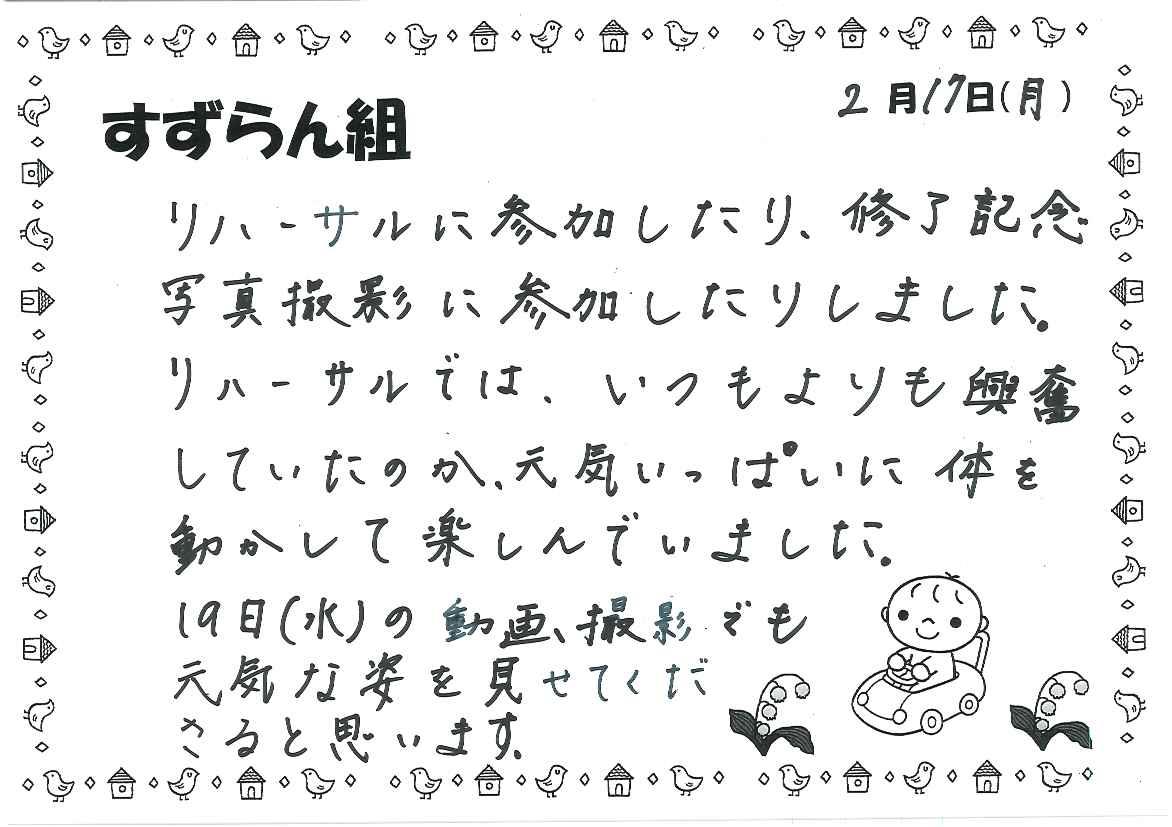 2月17日(月)
すずらん組
リハーサルに参加したり、修了記念
写真撮影に参加したりしました。
リハーサルでは、いつもよりも興奮
していたのか、元気いっぱいに体を
動かして楽しんでいました。
19日(水)の動画、撮影でも
元気な姿を見せてくだ
さると思います。